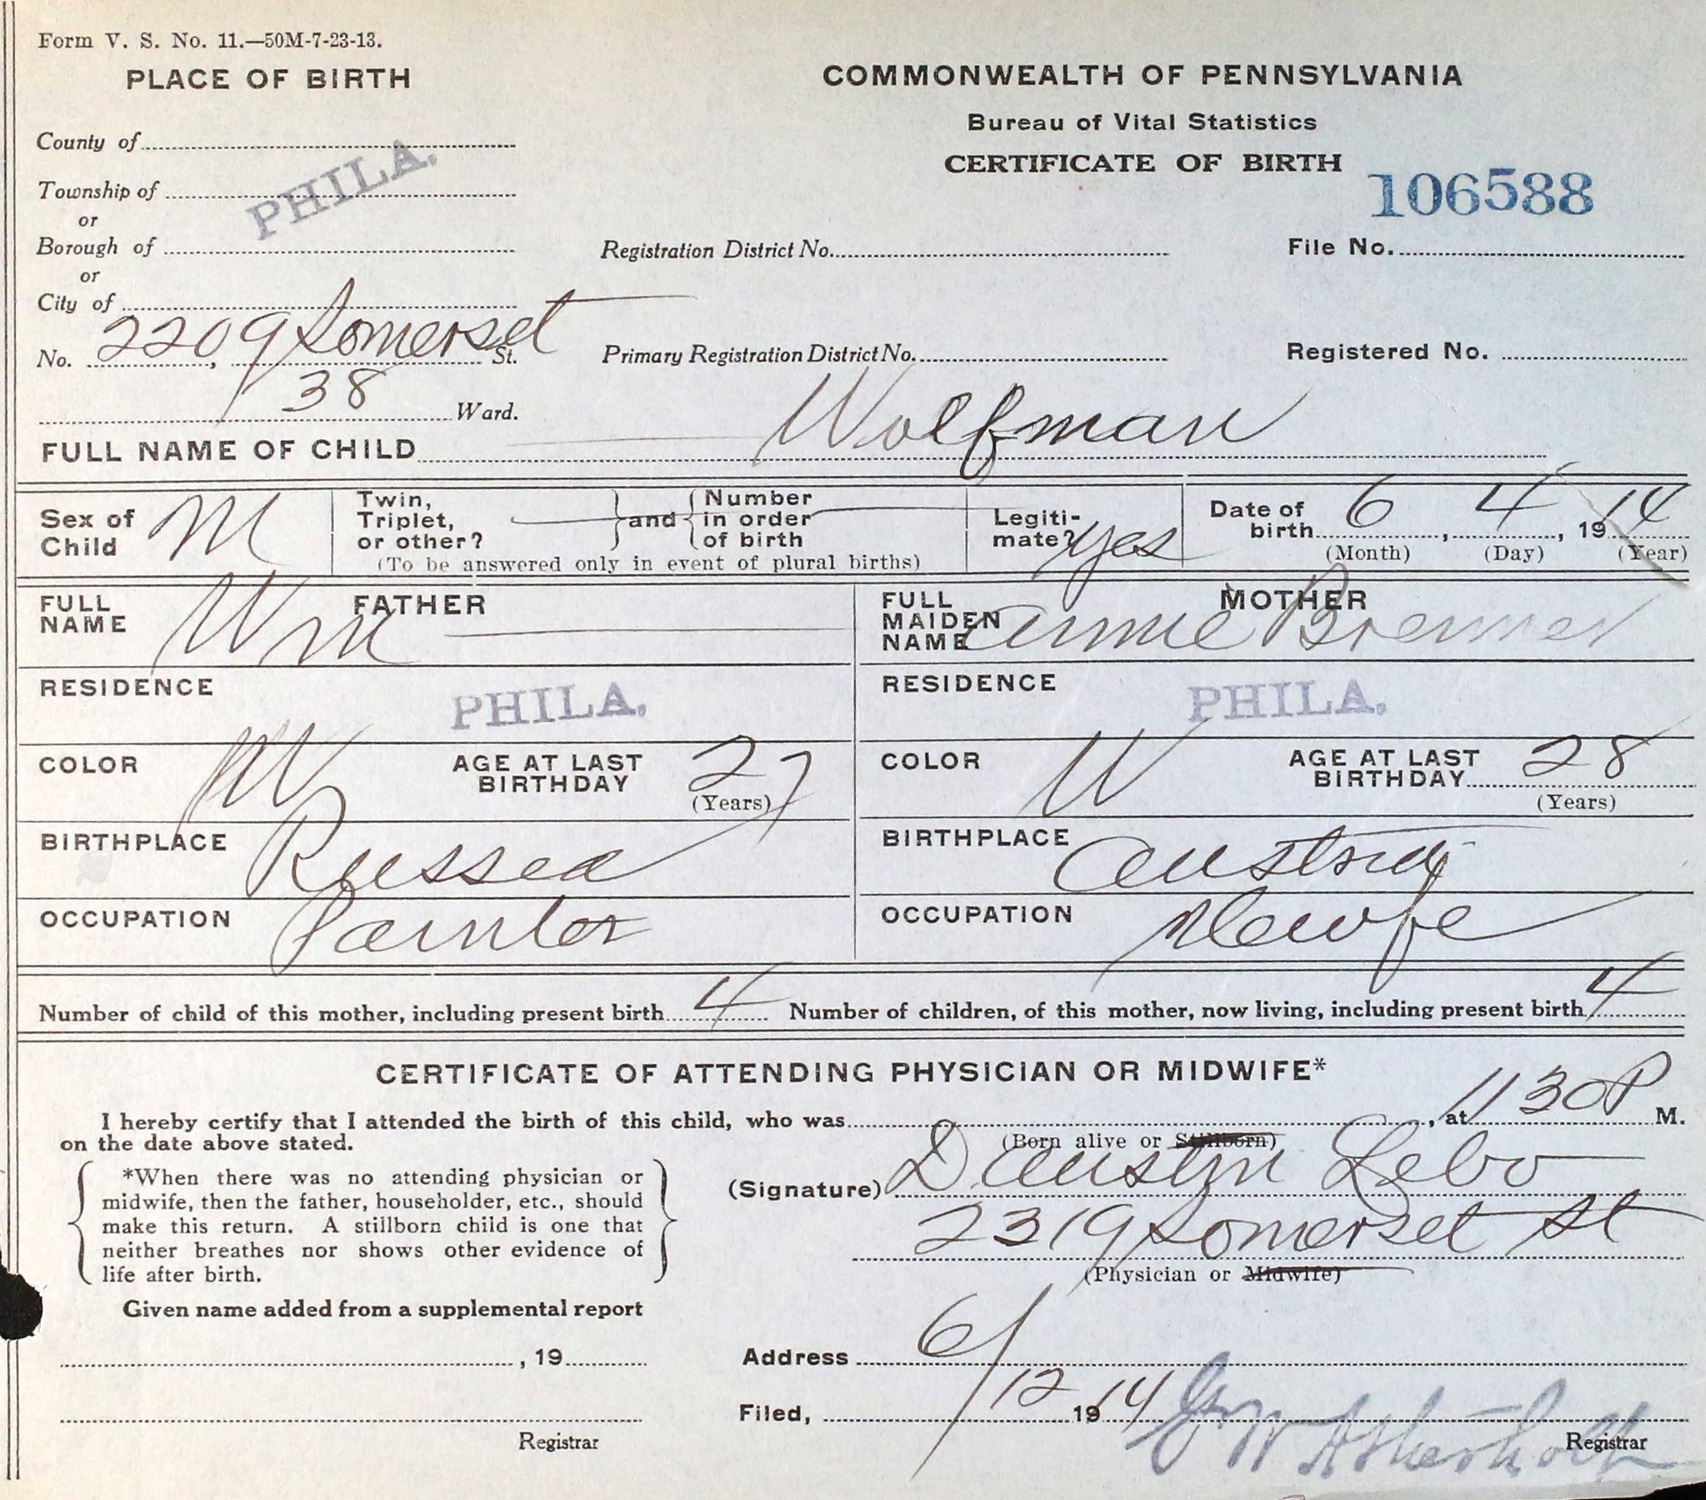 Form V. S. No. 11.—50M-7-23-13.
PLACE OF BIRTH
COMMONWEALTH OF PENNSYLVANIA
Bureau of Vital Statistics
CERTIFICATE OF BIRTH
106588
County of
PHILA.
Township of
or
Borough of
Registration District No.
File No.
or
City of
No. 2209 Somerset St.
Primary Registration District No.
Registered No.
38 Ward.
FULL NAME OF CHILD Wolfman
Sex of Child M
Twin, Triplet, or other? and Number in order of birth
(To be answered only in event of plural births)
Legitimate? yes
Date of birth 6, 4, 1914
(Month) (Day) (Year)
FATHER
FULL NAME Wm
MOTHER
FULL MAIDEN NAME Annie Brenner
RESIDENCE PHILA.
RESIDENCE PHILA.
COLOR W AGE AT LAST BIRTHDAY 27 (Years)
COLOR W AGE AT LAST BIRTHDAY 28 (Years)
BIRTHPLACE Russea
BIRTHPLACE Austria
OCCUPATION Painter
OCCUPATION
Number of child of this mother, including present birth 4 Number of children, of this mother, now living, including present birth 4
CERTIFICATE OF ATTENDING PHYSICIAN OR MIDWIFE*
I hereby certify that I attended the birth of this child, who was, at 1130 P M.
on the date above stated.
(Born alive or Stillborn)
*When there was no attending physician or
midwife, then the father, householder, etc., should
make this return. A stillborn child is one that
neither breathes nor shows other evidence of
life after birth.
(Signature) D Austin Lebo
2319 Somerset St
(Physician or Midwife)
Given name added from a supplemental report
, 19
Address
Filed, 6/12 1914
Registrar
Registrar